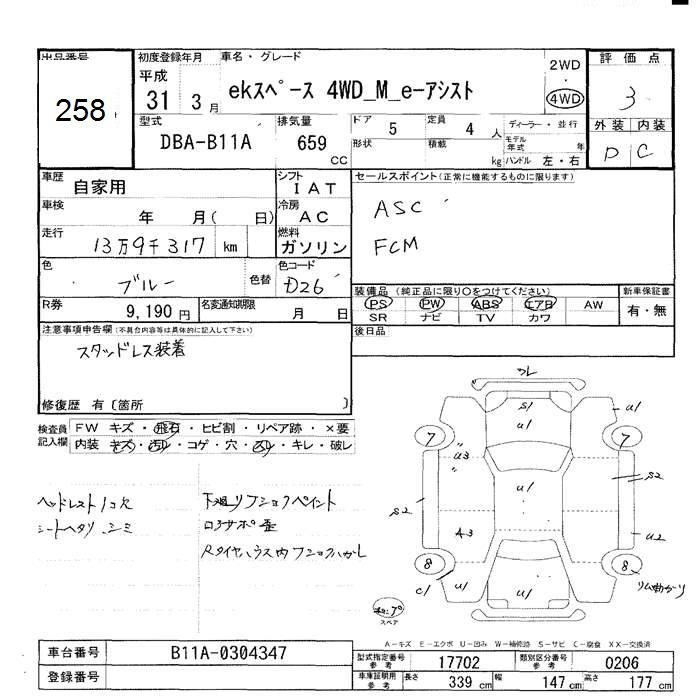 出品番号
258
初度登録年月
平成
31 3 月
車名・グレード
ekスペース 4WD_M_e-アシスト
2WD
・
4WD
評価点
3
外装 内装
D C
型式
DBA-B11A
排気量
659
cc
ドア
5
定員
4 人
形状
積載
kg
ディーラー・並行
モデル年式 年
ハンドル 左・右
車歴
自家用
シフト
IAT
車検
年 月( 日)
冷房
AC
走行
13万9千317 km
燃料
ガソリン
色
ブルー
色替
色コード
D26
R券
9,190 円
名変通知期限
月 日
セールスポイント(正常に機能するものに限ります)
ASC
FCM
装備品 (純正品に限り○をつけてください)
PS PW ABS エアB AW
SR ナビ TV カワ
新車保証書
有・無
後日品
注意事項申告欄(不具合内容等は具体的に記入して下さい)
スタッドレス装着
修復歴 有〔箇所 〕
検査員記入欄
FW キズ・飛石・ヒビ割・リペア跡・×要
内装 キズ・汚レ・コゲ・穴・スレ・キレ・破レ
ヘッドレスト1コ欠
シートヘタリ、シミ
下廻リフショクペイント
ロアサポ歪
Rタイヤハウス内フショクハガレ
S1
U1
U1
7
7
U3
U1
S2
S2
A3
U2
8
8
C1
U1
U1
U1
リム曲がり
スペア
A-キズ E-エクボ U-凹み W-補修跡 S-サビ C-腐食 XX-交換済
車台番号
B11A-0304347
登録番号
型式指定番号
参考
17702
類別区分番号
参考
0206
車庫証明用
参考
長さ 339 cm
幅 147 cm
高さ 177 cm